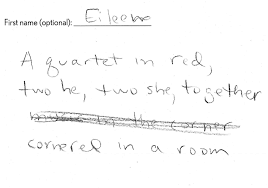 First name (optional): Eileen
A quartet in red,
two he, two she, together
cornered in a room